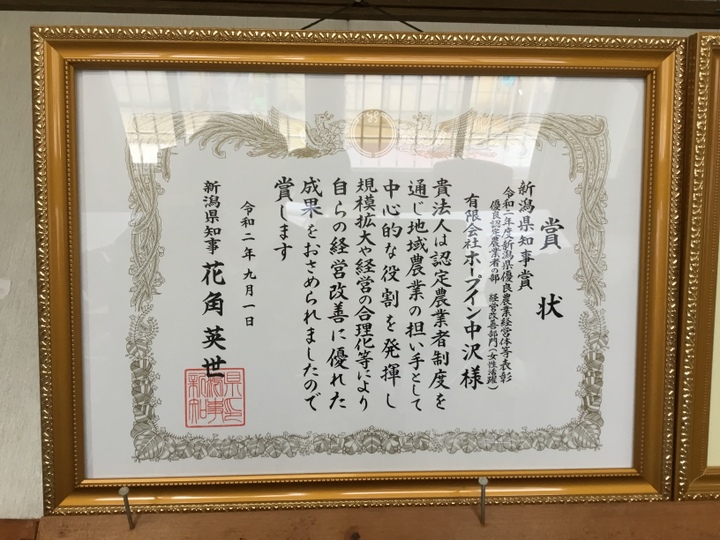 賞状
新潟県知事賞
令和二年度新潟県優良農業経営体等表彰
優良認定農業者の部 経営改善部門(女性活躍)
有限会社ホープイン中沢 様
貴法人は認定農業者制度を
通じ地域農業の担い手として
中心的な役割を発揮し
規模拡大や経営の合理化等により
自らの経営改善に優れた
成果をおさめられましたので
賞します
令和二年九月一日
新潟県知事 花角英世
新潟県知事之印